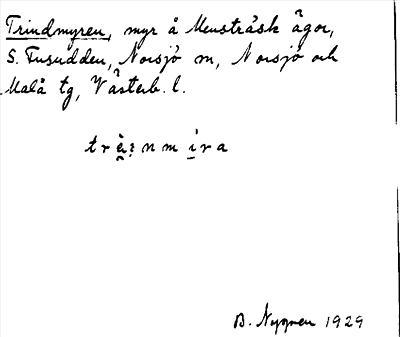 Trindmyren, myr å Mensträsk ägor,
S. Fusudden, Norsjö sn, Norsjö och
Malå tg, Västerb. l.
B. Nygren 1929